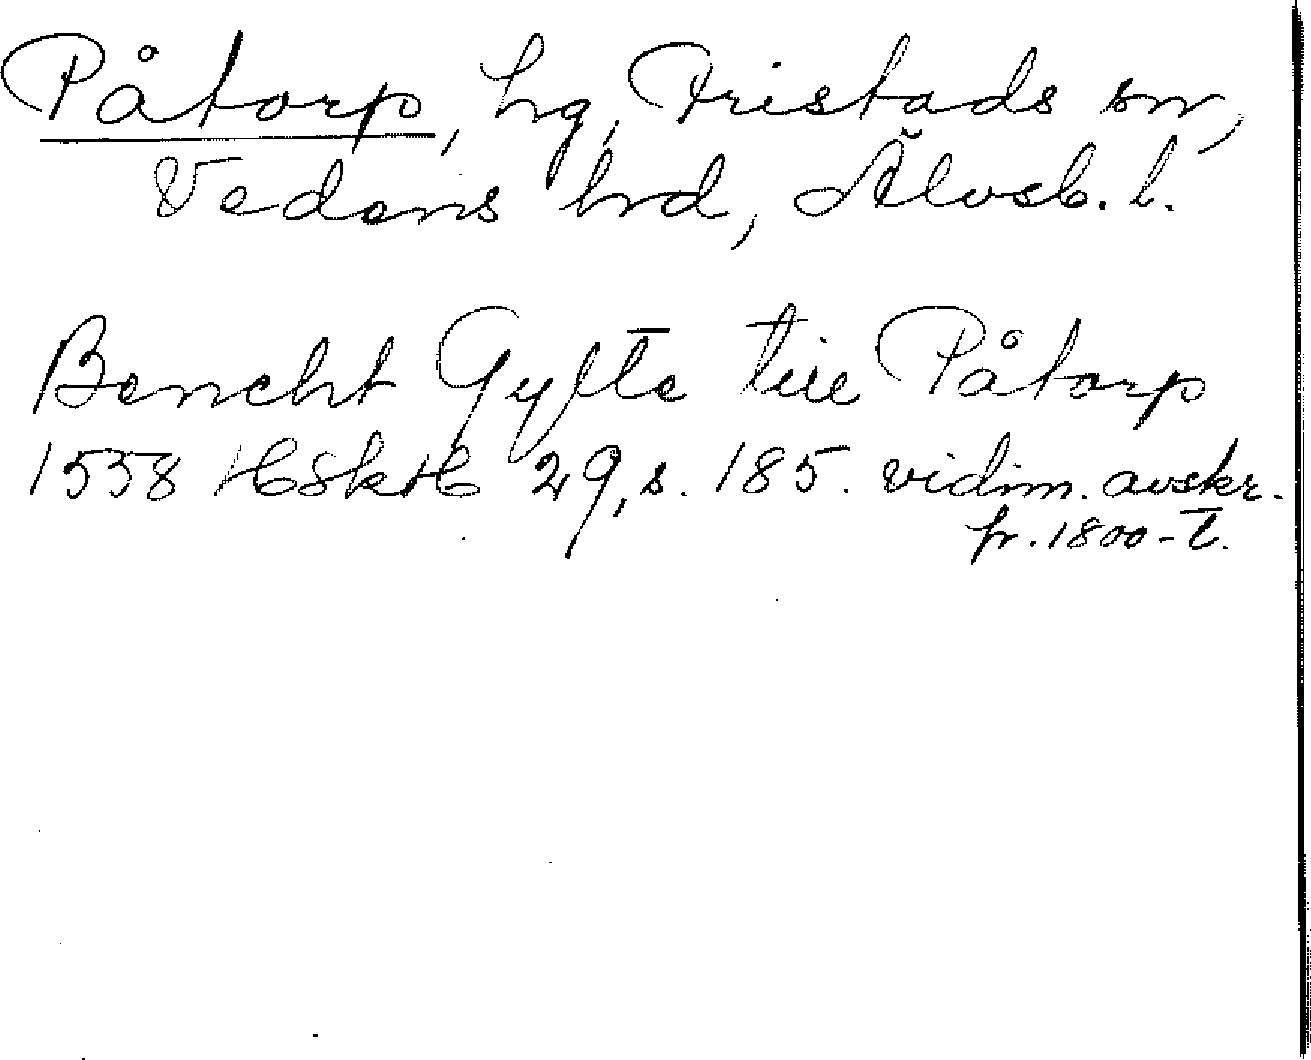 Påtorp, hg, Fristads sn,
Vedens hrd, Älvsb. l.
Bencht Gylte till Påtorp
1558 HSkH 29, s. 185. vidim. avskr.
fr. 1800-t.